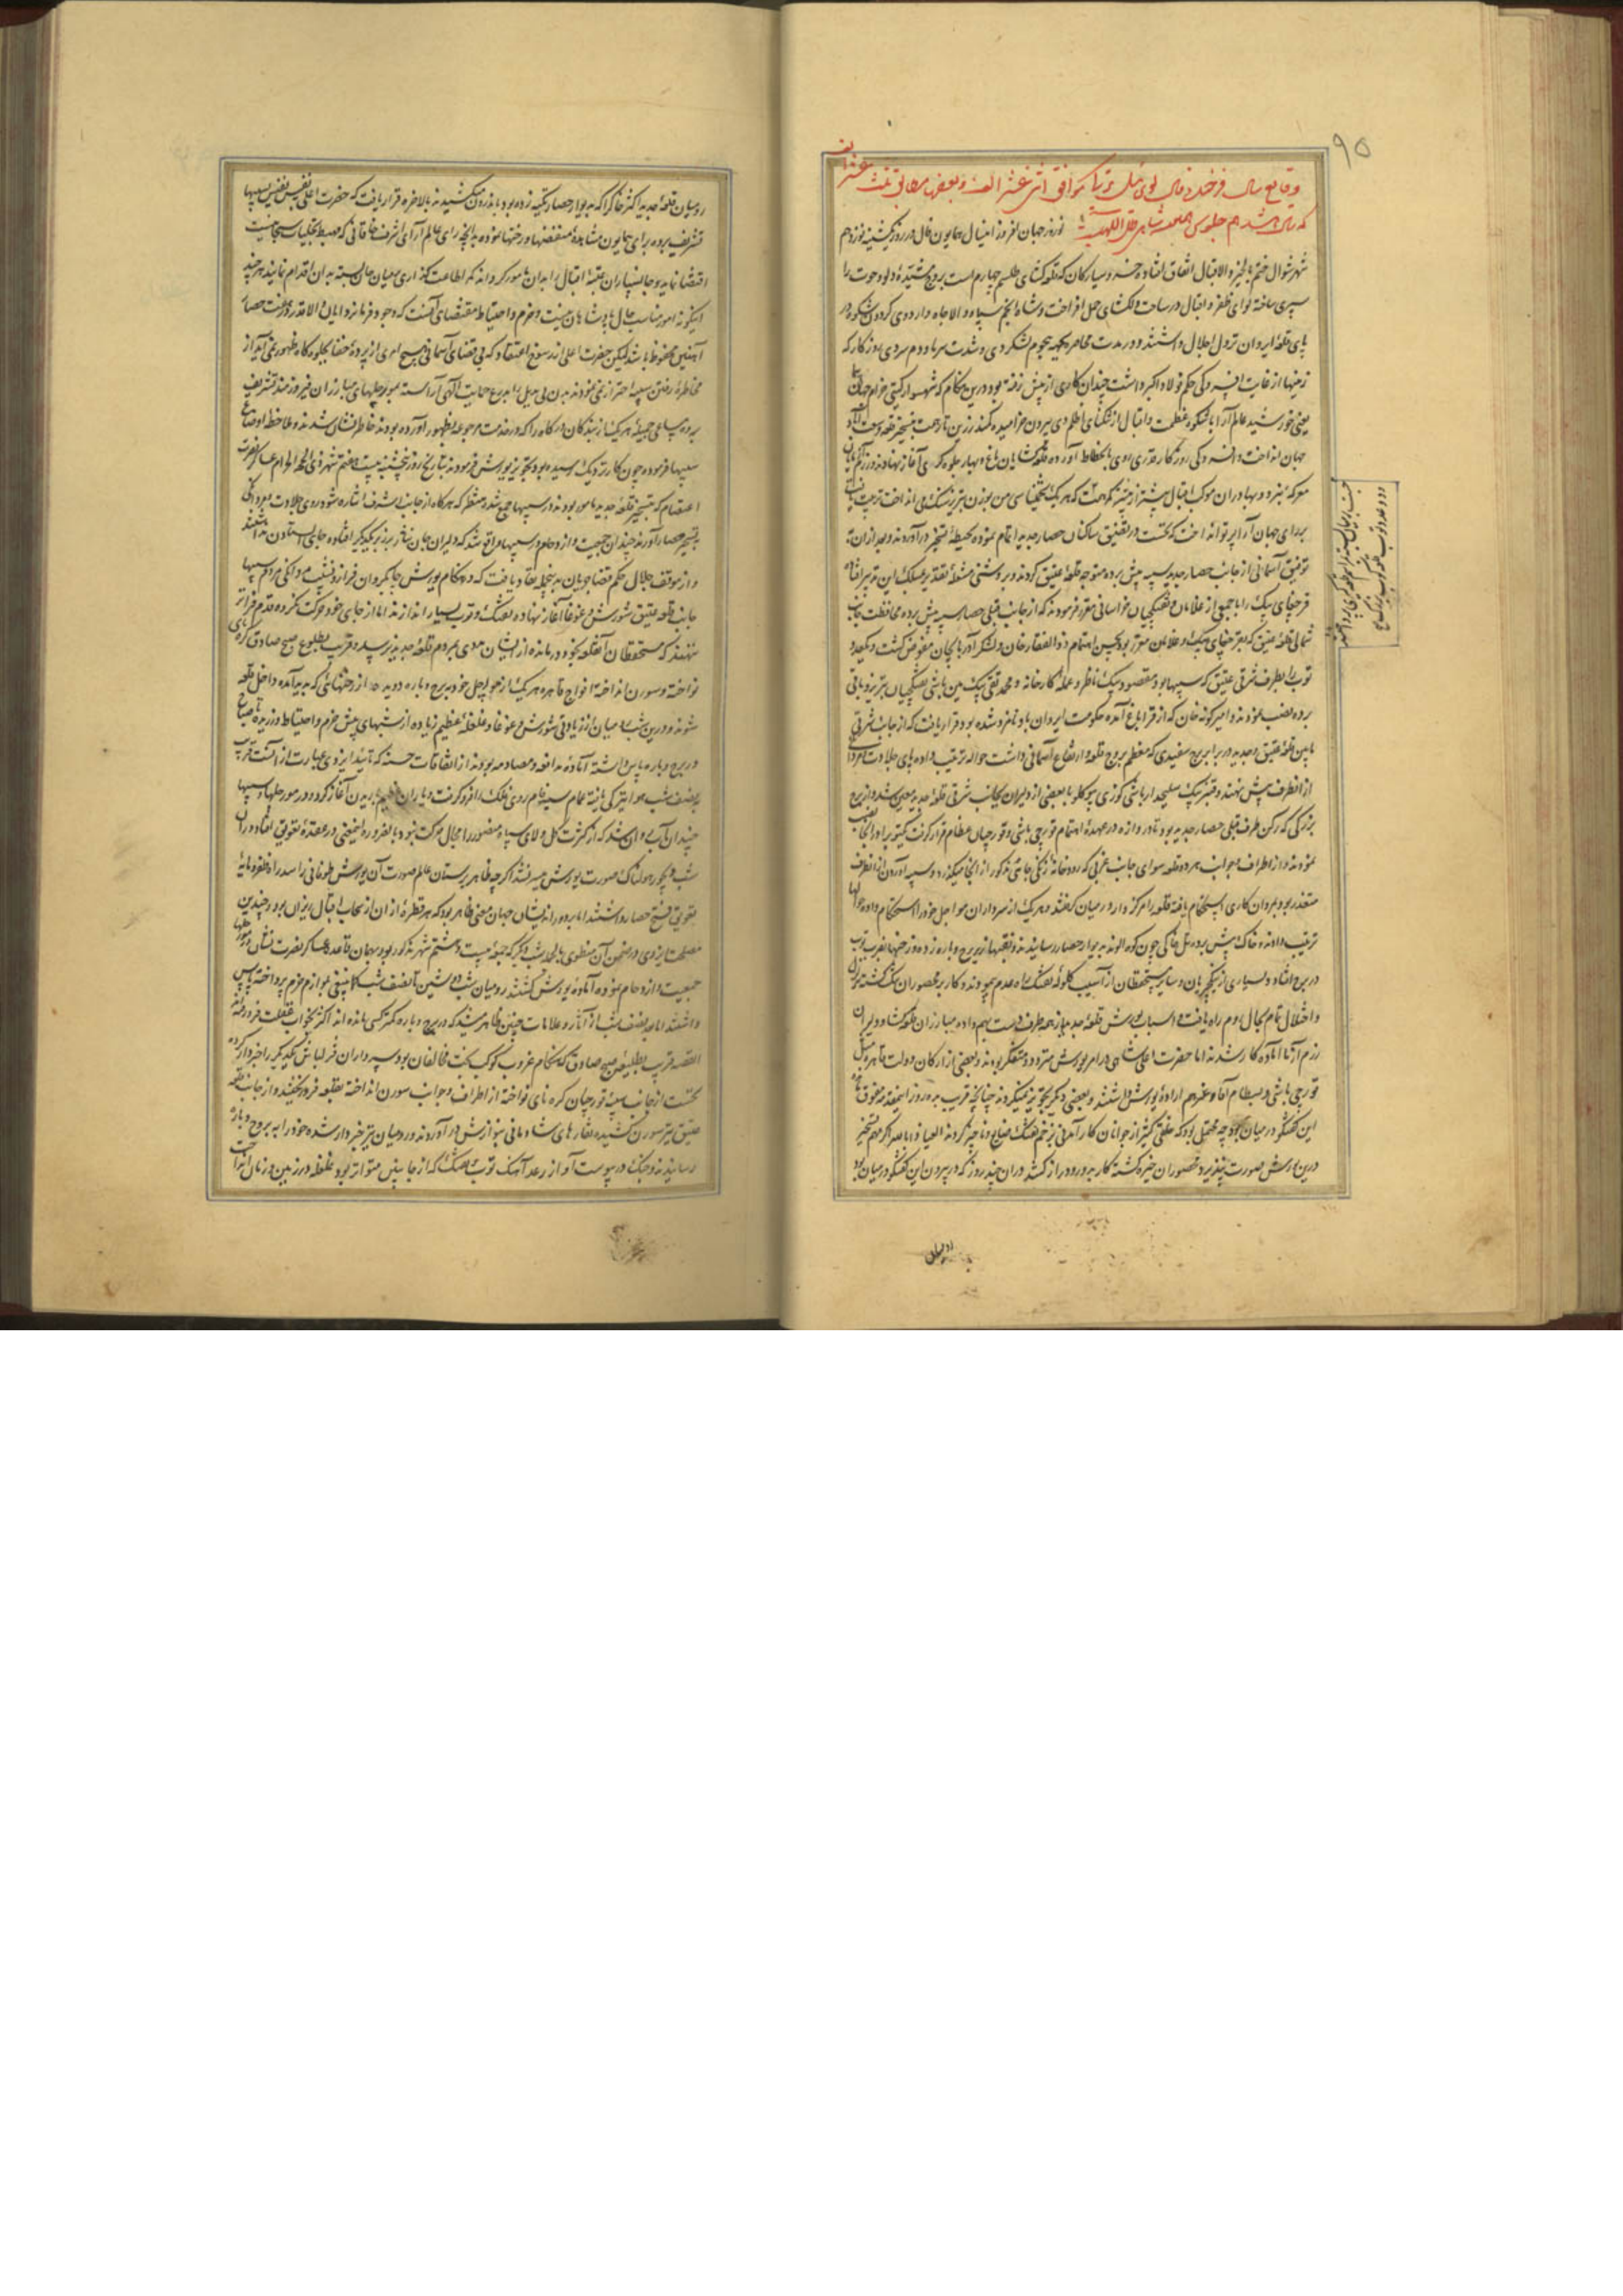 ۹۵
وقایع سال فرخنده فال لوی ئیل ترکی موافق اثنی عشر الف و بعضی مطابق ثلث عشر الف
که سال هشدهم جلوس همایون شاهی ظل اللهیست نوروز جهان افروز این سال همایون فال در روز یکشنبه نوزدهم
شهر شوال ختم بالخیر و الاقبال اتفاق افتاده خسرو سیارکان که قلعه کشای طلسم چهارم است بروج مشیده دلو و حوت را
سپری ساخته لوای ظفر و اقبال در ساحت دلکشای حمل افراخت و شاه انجم سپاه والا جاه در اردوی کردون شکوه در
پای قلعه ایروان نزول اجلال داشتند و در مدت محاصره که هجوم لشکر دی و شدت سرما و دم سردی روزگار که
زمینها از غایت افسردکی حکم فولاد اکبر داشت چندان کاری از پیش نرفته بود درین هنکام که شهسوار کیتی خرام جهان
یعنی خورشید عالم آرا با شکوه عظمت و اقبال از تنکنای اظلم دی بیرون خرامیده کمند زرین تار جهت تسخیر قلعه
جهان انداخت و افسردکی روزگار قدری روی بانحطاط آورده قلعه کشایان باغ و بهار جلوه کری آغاز نهادند
معرکه نبرد و بهادران موکب اقبال پیشتر از پیشتر کمر همت که هر یک بوزن تبریز سنک می انداخت ترتیب
برای جهان آرا پرتو انداخت که نخست در تضییق ساکنان حصار جدید اتمام نموده بحیطه تسخیر درآورند و بعد از آن
توفیق آسمانی از جانب حصار جدید سیبه پیش برده متوجه قلعه عتیق کردند
قرچقای بیک را با جمعی از غلامان و تفنکچیان خراسانی مقرر فرمودند که از جانب قبلی حصار سیبه پیش برده محافظت جانب
شمالی قلعه عتیق که بقرچقای بیک و غلامان مقرر بود بحسن اهتمام ذوالفقار خان و لشکر آذربایجان مفوض کشت و یکعدد
توب بطرف شرقی عتیق که سیبها بود مقصود بیک ناظر و عمله کارخانه و محمد تقی بیک مین باشی تفنکچیان تبریز و بافق
برده نصب نمودند و امیر کونه خان که از قراباغ آمده حکومت ایروان باو نامزد شده بود قرار یافت که از جانب شرقی
مابین قلعه عتیق و جدید در برابر برج سفیدی که معظم بروج قلعه و ارتفاع آسمانی داشت حواله ترتیب داده پای جلادت
از آنطرف پیش نهند و قنبر بیک سلیحدار باشی کوزی بیوکلو با بعضی از دلیران بجانب شرقی قلعه جدید معین شد و از برج
بزرکی که رکن طرف قبلی حصار جدید بود تا دروازه در عهده اهتمام قورچی باشی و قورچیان عظام قرار کرفت
نمودند و از اطراف و جوانب هر دو قلعه سوای جانب غربی که رودخانه زنکی جاشی مذکور از آنجا میکذرد و سیبه آوردن از آنطرف
متعذر بود مردان کاری استحکام یافته قلعه را مرکز وار در میان کرفتند و هر یک از سرداران مواجل خود را استحکام داده
ترتیب دادند و خاک پیش برده تل خاکی چون کوه الوند بدیوار حصار رسانیدند و نقبها از زیر برج و باره زده و رخنها بضرب توب
در برج افتاد و بسیاری از ینکچریان و سایر مستحفظان از آسیب کلوله تفنک راه عدم پیمودند و کار بر محصوران تنک کشته
و اختلال تمام بحال مردم راه یافت و اسباب یورش قلعه جدید از همه طرف دست بهم داده مبارزان قلعه کشا و دلیران
رزم آزما آماده کار شدند اما حضرت اعلی شاهی در امر یورش متردد و متفکر بودند و بعضی از ارکان دولت قاهره مثل
قورچی باشی و بسطام آقا و غیرهم اراده یورش داشتند و بعضی دیکر تجویز نمیکردند چنانچه قریب به ده روز
این کفتکو در میان بود چه محتمل بود که خلقی کثیر از جوانان کار آمدنی بزخم تفنک ضایع و ناچیز کردند العیاذ بالله اکر مهم تسخیر
درین یورش صورت نپذیرد محصوران خیره کشته کار بدور و دراز کشد در آن چند روز که در بیرون این کفتکو در میان بود
رومیان قلعه جدید اکثر خاکرا که بدیوار حصار تکیه زده بود باندرون میکشیدند بالاخره قرار یافت که حضرت اعلی بنفس نفیس بسیبها
تشریف برده برای همایون مشاهده منقصتها و رخنها نموده بدانچه رای عالم آرای اشرف خاقانی که مهبط تجلیات سبحانیست
اقتضا نماید و جانسپاران عتبه اقبال را بدان مامور کردانند که اطاعت کذاری بمیان جان بسته بدان اقدام نمایند هر چند
اینکونه امور مناسب حال پادشاهان نیست و حزم و احتیاط مقتضی آنست که وجود فرمانروایان والا قدر در حصار
آهنین محفوظ باشد لیکن حضرت اعلی از رسوخ اعتقاد که بی قضای آسمانی هیچ امری از پرده خفا بجلوه کاه ظهور نمی آید از
مخاطره رفتن سیبه احتراز نمی نمودند بدن بی بدیل را بدرع حمایت الهی آراسته بمورچلهای مبارزان فیروزمند تشریف
برده مساعی جمیله هر یک از بندکان درکاه را که در خدمت مرجوعه بظهور آورده بودند خاطر نشان شدند و ملاحظه اوضاع
سیبها فرموده چون کار نزدیک رسیده بود تجویز یورش فرمودند بتاریخ روز پنجشنبه بیست و هفتم شهر ذی الحجه الحرام عساکر نصرت
اعتصام که بتسخیر قلعه جدید مامور بودند در سیبها جمع شده منتظر که هر کاه از جانب اشرف اشاره شود روی جلادت و مردانکی
بتسخیر حصار آورند چندان جمعیت و ازدحام در سیبها واقع شد که دلیران جان نثار بر زبر یکدیکر افتاده جای ایستادن نداشتند
و از موقف جلال حکم قضا جریان بدینجمله نفاذ یافت که در هنکام یورش چابکروان فراز و نشیب مردانکی مردم سیبهای
جانب قلعه عتیق شورش و غوغا آغاز نهاده تفنک و توب بسیار اندازند اما از جای خود حرکت نکرده قدم فراتر
ننهند که مستحفظان آن قلعه بخود درمانده از ایشان مددی بمردم قلعه جدید نرسد و قریب بطلوع صبح صادق کرنای
نواخته و سورن انداخته افواج قاهره هر یک از مورچل خود ببرج و باره دویده از رخنهائی که پدید آمده داخل قلعه
شوند و درین شب رومیان از زیادتی شورش و غوغا و غلغله عظیم زیاده از شبهای پیش حزم و احتیاط ورزیده تا صباح
در برج و باره پاس داشته آماده مدافعه و مصادمه بودند از اتفاقات حسنه که تائید ایزدی عبارت از آنست قریب
بنصف شب هوا تیرکی یافته غمام سیه فام روی فلک را فرو کرفت و باران عظیم باریدن آغاز کرد و در مورچلها و سیبها
چندان آب روان شد که از کثرت کل و لای سپاه منصور را مجال حرکت نبود بالضروره این معنی در عقده تعویق افتاد و در آن
شب دیجور هولناک صورت یورش میسر نشد اکرچه ظاهر پرستان عالم صورت آن پورش طوفانی را سد راه ظفر و مایه
تعویق فتح حصار داشتند اما بر دور اندیشان جهان معنی ظاهر بود که هر قطره از آن از سحاب اقبال ریزان بود و چندین
مصلحت ایزدی در ضمن آن منطوی بالجمله شب دیکر که جمعه بیست و هشتم شهر مذکور بود بهمان قاعده عساکر نصرت نشان در مورچلها
جمعیت و ازدحام نموده آماده یورش کشتند رومیان شب دوشین تا نصف شب کما ینبغی بلوازم حزم پرداخته پاس
داشتند اما بعد نصف شب از آثار و علامات چنین ظاهر میشد که در برج و باره کمتر کسی مانده اند اکثر بخواب غفلت فرو رفتند
القصه قریب بطلیعه صبح صادق که هنکام غروب کوکب بخت مخالفان بود سرداران قزلباش یکدیکر را خبردار کرده
نخست از جانب سیبه قورچیان کره نای نواخته از اطراف و جوانب سورن انداخته بقلعه فرو ریختند و از جانب قلعه
عتیق نیز سورن کشیده نقارهای شادمانی بنوازش درآوردند و رومیان نیز خبردار شده خود را به بروج و باره
رسانیدند و جنک در پیوست آواز رعد آهنک توب و تفنک که از جانبین متواتر بود غلغله در زمین و زمان انداخت